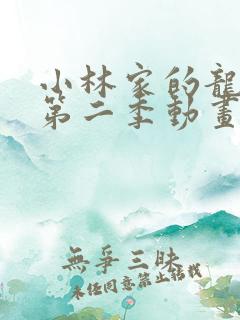 小林家的龍
第二季動畫
無爭三昧
未任同意禁止話找